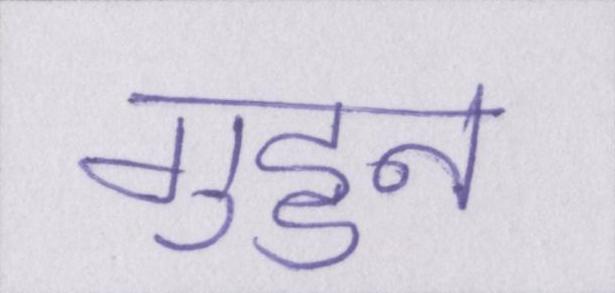 गुड्डन